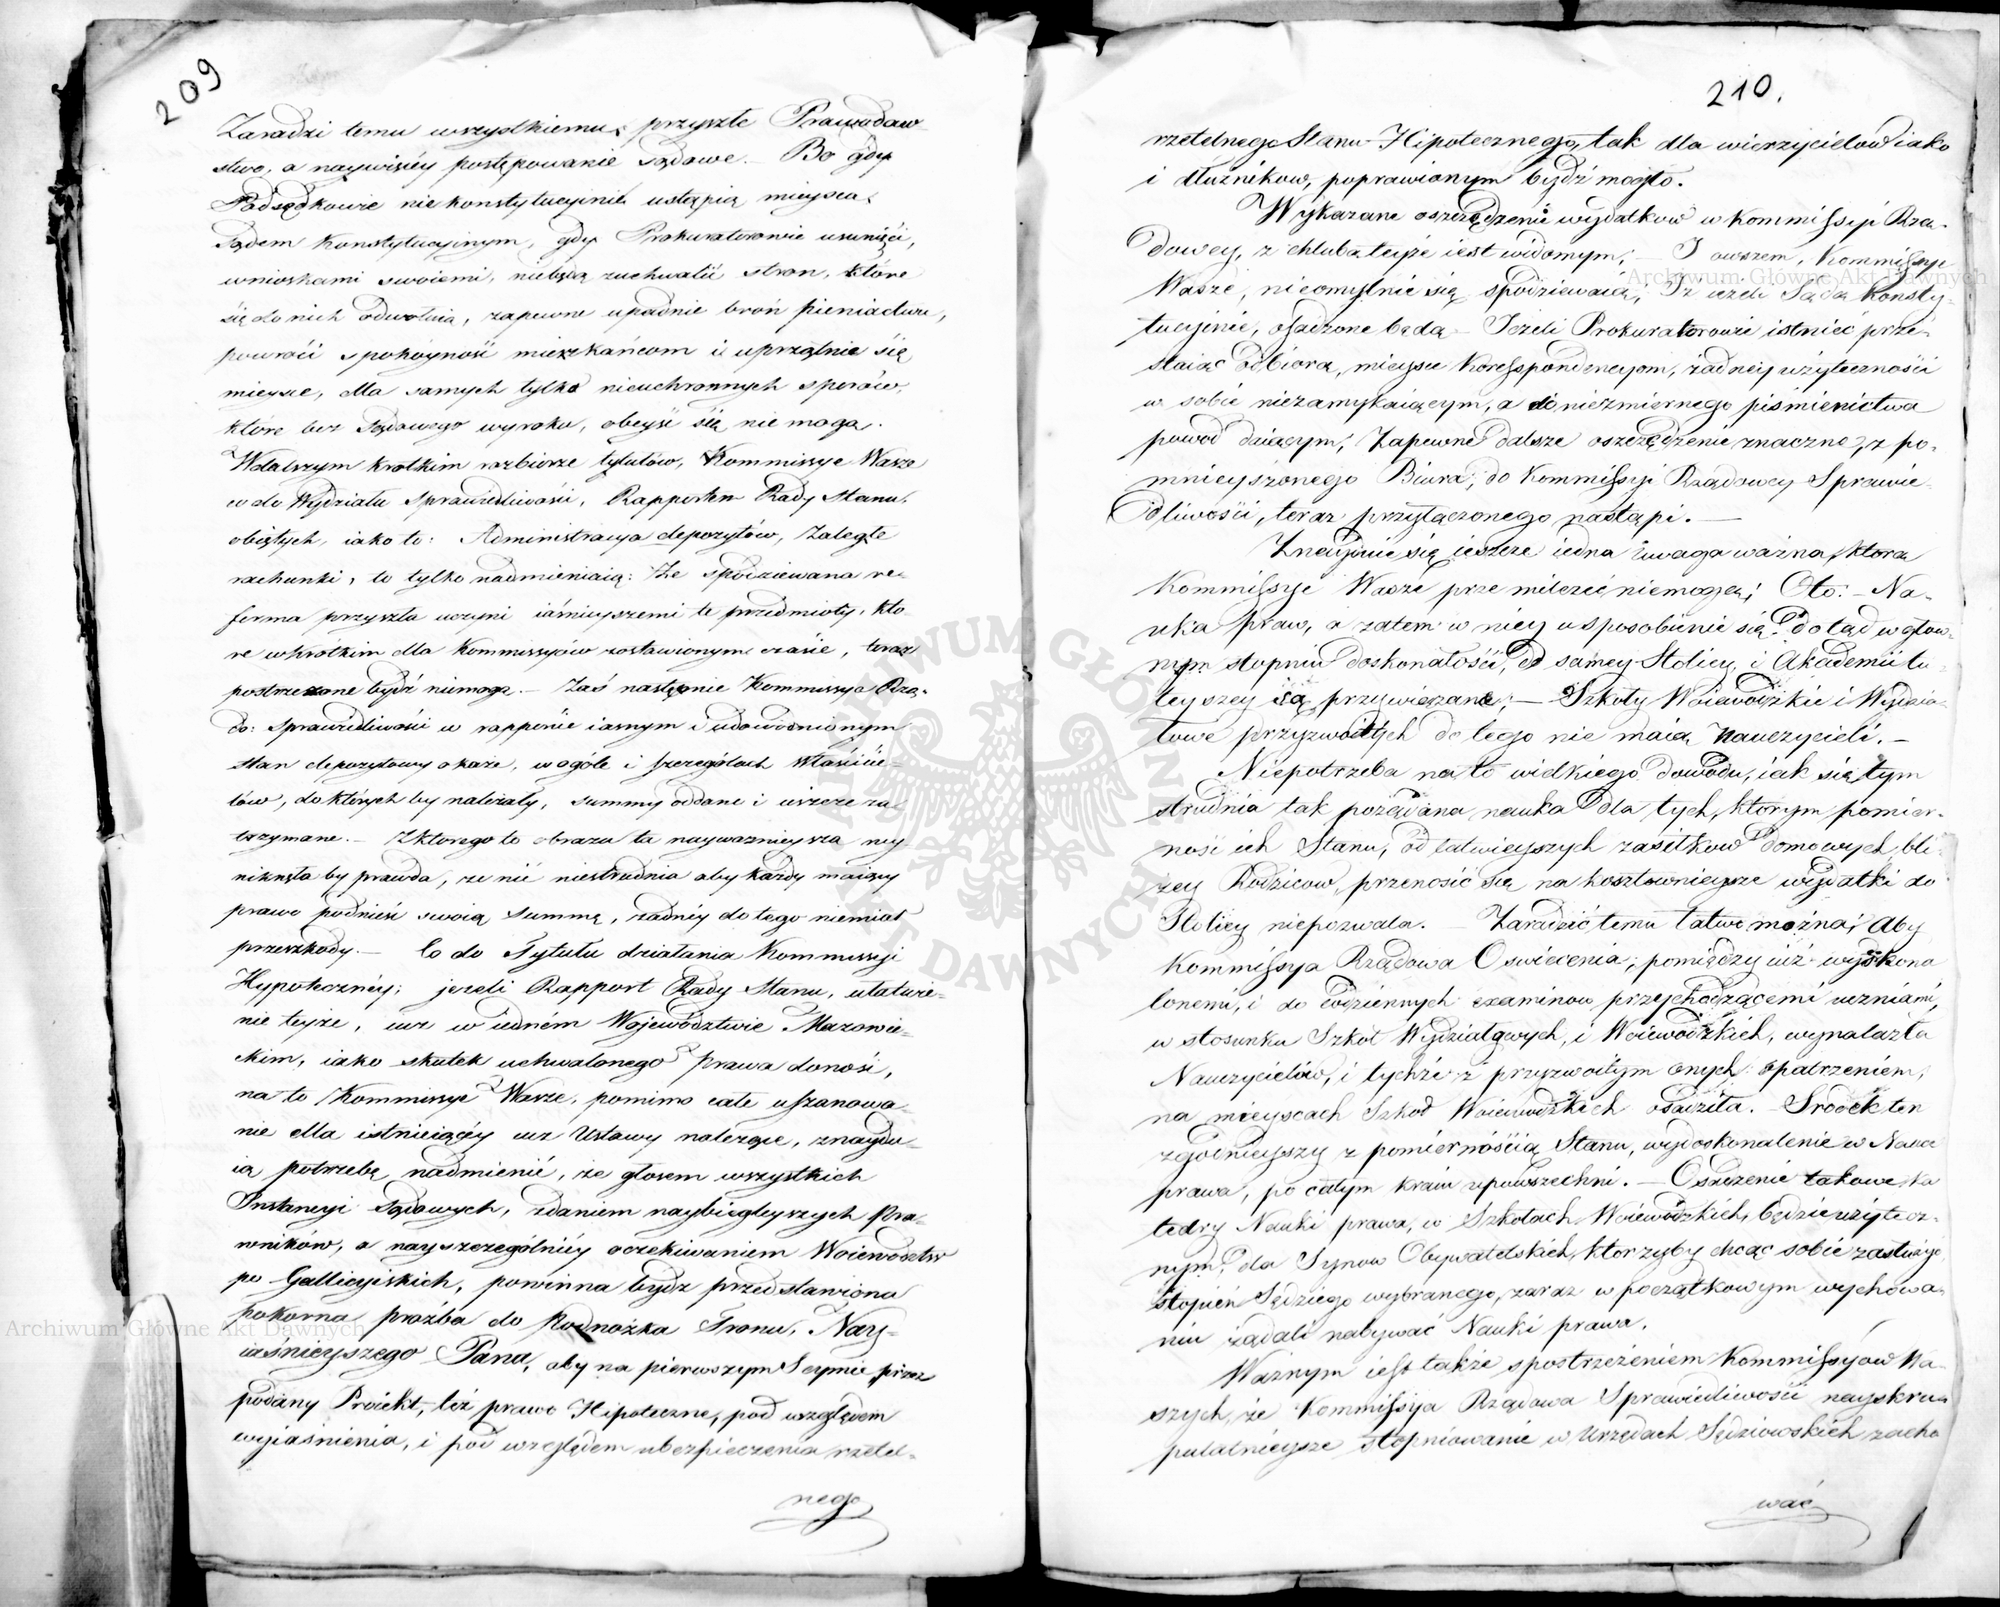 209
Zaradzi temu wszystkiemu, przyszłe Prawodaw
stwo, a naywięcéy postępowanie sądowe. — Bo gdy
Podsędkowie niekonstytucyjni ustąpią mieysca,
sądom Konstytucyinym, gdy Prokuratorowie usunięci,
wnioskami swoiemi, niebędą zuchwalić stron, które
się do nich odwołuią, zapewne upadnie broń pieniactwu,
powróci spokoyność mieszkańcom i uprzątnie się
mieysce, dla samych tylko nieuchronnych sporów,
które bez Sądowego wyroku, obeyść się nie mogą.
Wdalszym krótkim rozbiorze tytułów, Kommissye Wasze
co do Wydziału Sprawiedliwości, Rapportem Rady Stanu,
obiętych, iako to: Administracya depozytów, Zaległe
rachunki, to tylko nadmieniaią: Że spodziewana re-
forma przyszła uczyni iaśnieyszemi te przedmioty, któ
re wkrótkim dla Kommissyów zostawionym czasie, teraz
postrzeżone bydź niemogą. — Zaś następnie Kommissya Rzą-
do: Sprawiedliwości w rapporcie iasnym i udowodnionym
stan depozytowy okaże, wogóle i szczegółach Właścicie-
lów, do których by należały, summy oddane i ieszcze za
trzymane. — Zktórego to obrazu ta nayważnieysza wy
niknęła by prawda, że nic nieutrudnia aby każdy maiący
prawo podnieść swoią Summę, żadnéy do tego niemiał
przeszkody. — Co do Tytułu działania Kommissyi
Hypotecznéy; jeżeli Rapport Rady Stanu, ułatwie-
nie teyże, iuż w iedném Województwie Mazowie-
ckim, iako skutek uchwalonego prawa donosi,
na to Kommissye Wasze, pomimo całe uszanowa-
nie dla istnieiącéy iuż Ustawy należące, znaydu-
ią potrzebę nadmienić, że głosem wszystkich
Instancyi Sądowych, zdaniem naybiegleyszych Pra-
wników, a nayszczególniéy oczekiwaniem Woiewództw
po Gallicyiskich, powinna bydź przedstawiona
pokorna proźba do Podnóżka Tronu, Nay-
iaśnieyszego Pana, aby na pierwszym Seymie przez
podany Proiekt, też prawo Hipoteczne, pod względem
wyiaśnienia, i pod względem ubezpieczenia rzetel-
nego
210.
rzetelnego Stanu Hipotecznego, tak dla wierzycielów iako
i dłużników, poprawionym bydź mogło.
Wykazane oszczędzenie wydatków w Kommissyi Rzą-
dowey, z chlubą teyże iest widomym; — I owszem, Kommissye
Wasze, nieomylnie się spodziewaią, Iż ieżeli Sądy Konsty-
tucyinie, osadzone będą — Jeżeli Prokuratorowie istnieć prze-
staiąc odbiorą, mieysce Korresspondencyom, żadney użyteczności
w sobie niezamykaiącym, a do niezmiernego piśmienictwa
powód daiącym, Zapewne dalsze oszczędzenie znaczne, z po-
mnieyszonego Biura, do Kommissyi Rządowey Sprawie-
dliwości, teraz przyłączonego nastąpi. —
Znayduie się ieszcze iedna uwaga ważna, którą
Kommissye Wasze przemilczeć niemogą; Oto: — Na-
uka praw, a zatem w niey usposobienie się dotąd w głów-
nym stopniu doskonałości, do samey Stolicy i Akademii tu-
teyszey są przywiązane; — Szkoły Woiewódzkie i Wydzia-
łowe przyzwoitych do tego nie maią Nauczycieli. —
Niepotrzeba na to wielkiego dowodu, iak się tym
utrudnia tak pożądana nauka dla tych, którym pomier-
ność ich Stanu, od łatwieyszych zasiłków domowych, bli-
żey Rodziców, przenosić się na kosztownieysze wydatki do
Stolicy niepozwala. — Zaradzić temu łatwo można; Aby
Kommissya Rządowa Oświecenia, pomiędzy iuż wydosko-
lonemi, i do codziennych examinów przychodzącemi uczniami,
w stosunku Szkół Wydziałowych, i Woiewódzkich, wynalazła
Nauczycielów, i tychże z przyzwoitym onych opatrzeniem,
na mieyscach Szkół Woiewódzkich osadziła. — Środek ten
zgodnieyszy z pomiernością Stanu, wydoskonalenie w Nauce
prawa, po całym kraiu upowszechni. — Osadzenie takowe ka
tedry Nauki prawa, w Szkołach Woiewódzkich, będzie użytecz-
nym, dla Synów Obywatelskich, którzyby chcąc sobie zasłużyć
stopień Sędziego wybranego, zaraz w początkowym wychowa-
niu żądali nabywać Nauki prawa.
Ważnym iest także spostrzeżeniem Kommissyów Wa-
szych, że Kommissya Rządowa Sprawiedliwości nayskru-
pulatnieysze stopniowanie w Urzędach Sędziowskich zacho
wać
Archiwum Główne Akt Dawnych
Archiwum Główne Akt Dawnych
ARCHIWUM GŁÓWNE AKT DAWNYCH